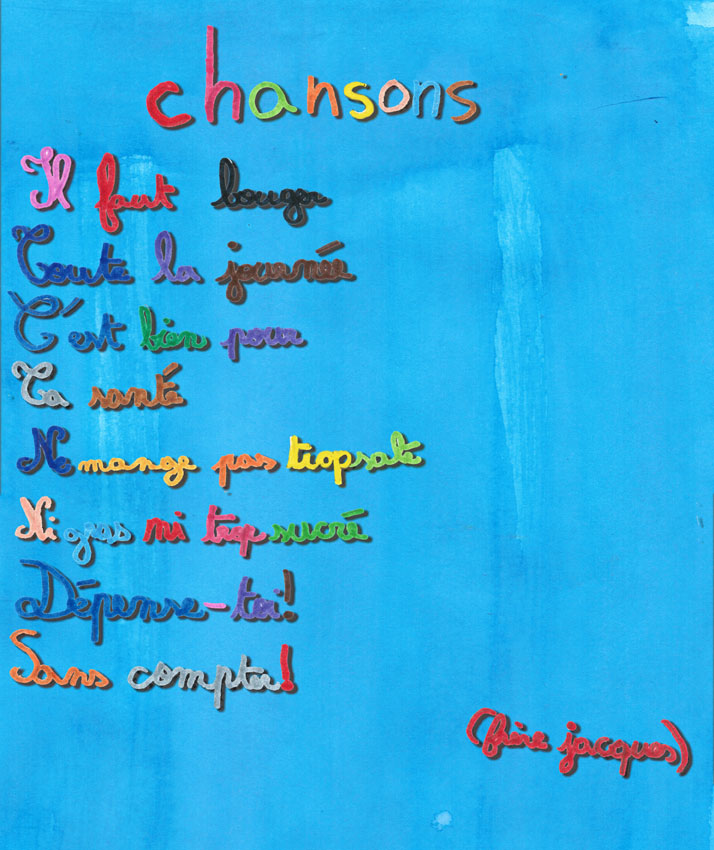 chansons
Il faut bouger
Toute la journée
C'est bien pour
Ta santé
N mange pas trop salé
Ni gras ni trop sucré
Dépense-toi!
Sans compter!
(frère jacques)